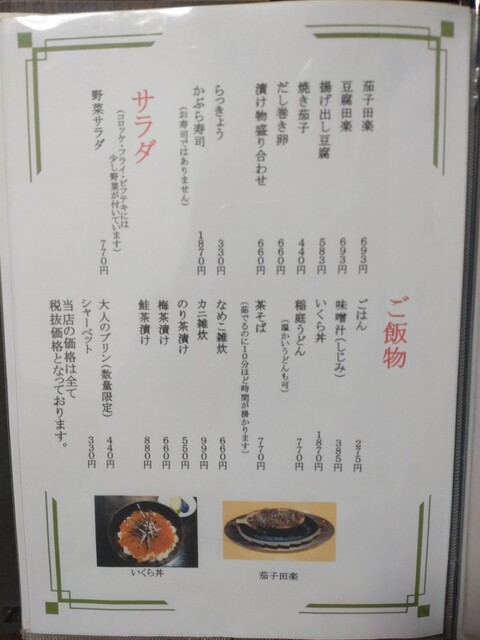 茄子田楽 693円
豆腐田楽 693円
揚げ出し豆腐 583円
焼き茄子 440円
だし巻き卵 660円
漬け物盛り合わせ 660円
らっきょう 330円
かぶら寿司 1870円
(お寿司ではありません)
サラダ
(コロッケ・フライ・ビフテキには
少し野菜が付いています)
野菜サラダ 770円
ご飯物
ごはん 275円
味噌汁(しじみ) 385円
いくら丼 1870円
稲庭うどん 770円
(温かいうどんも可)
茶そば 770円
(茹でるのに10分ほど時間が掛かります)
なめこ雑炊 660円
カニ雑炊 990円
のり茶漬け 550円
梅茶漬け 660円
鮭茶漬け 880円
大人のプリン(数量限定) 440円
シャーベット 330円
当店の価格は全て
税抜価格となっております。
いくら丼
茄子田楽